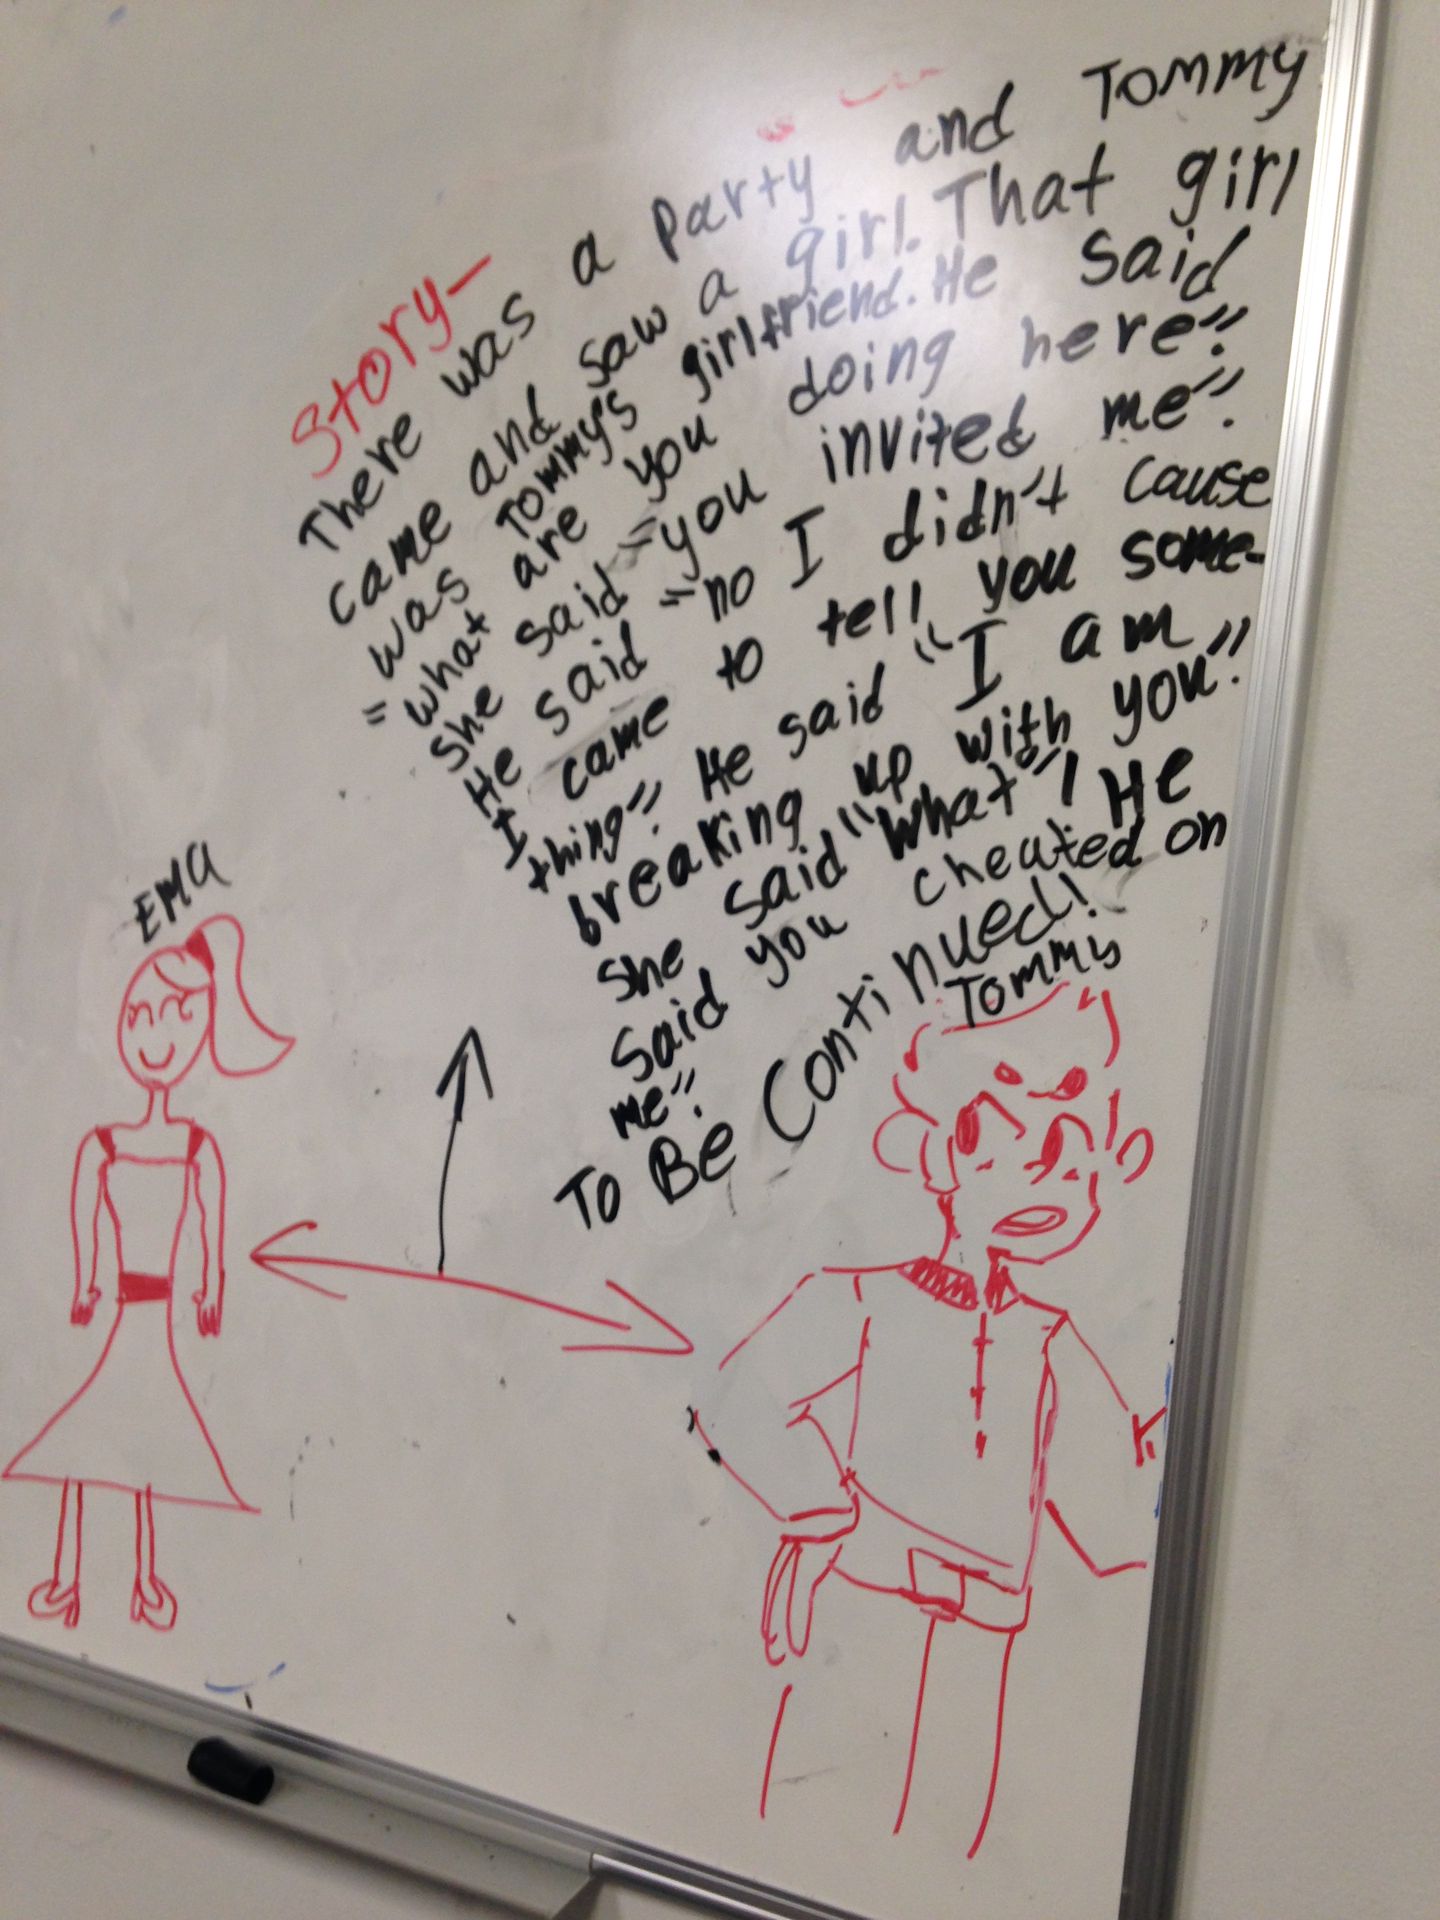 Story-
There was a party and Tommy
came and saw a girl. That girl
was Tommy's girlfriend. He said
"what are you doing here".
She said "you invited me".
He said "no I didn't cause
I came to tell you some-
thing". He said "I am
breaking up with you".
She said "what"! He
Said you cheated on
me".
To Be Continued!
EMA
Tommy